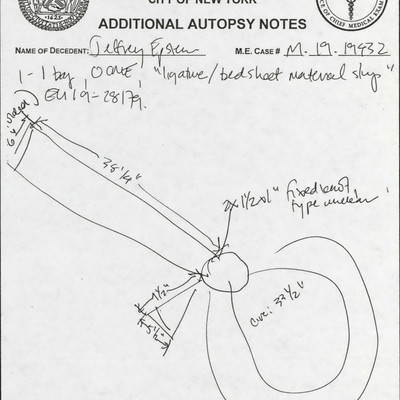 CITY OF NEW YORK
ADDITIONAL AUTOPSY NOTES
NAME OF DECEDENT: Jeffrey Epstein M.E. CASE # M.19.19432
1-1 bag, OCME, "ligature/bedsheet material strip"
EU19-28179.
38 1/4"
2x1 1/2x1" fixed knot
type unclear
1 1/2"
Circ: 33 1/2"